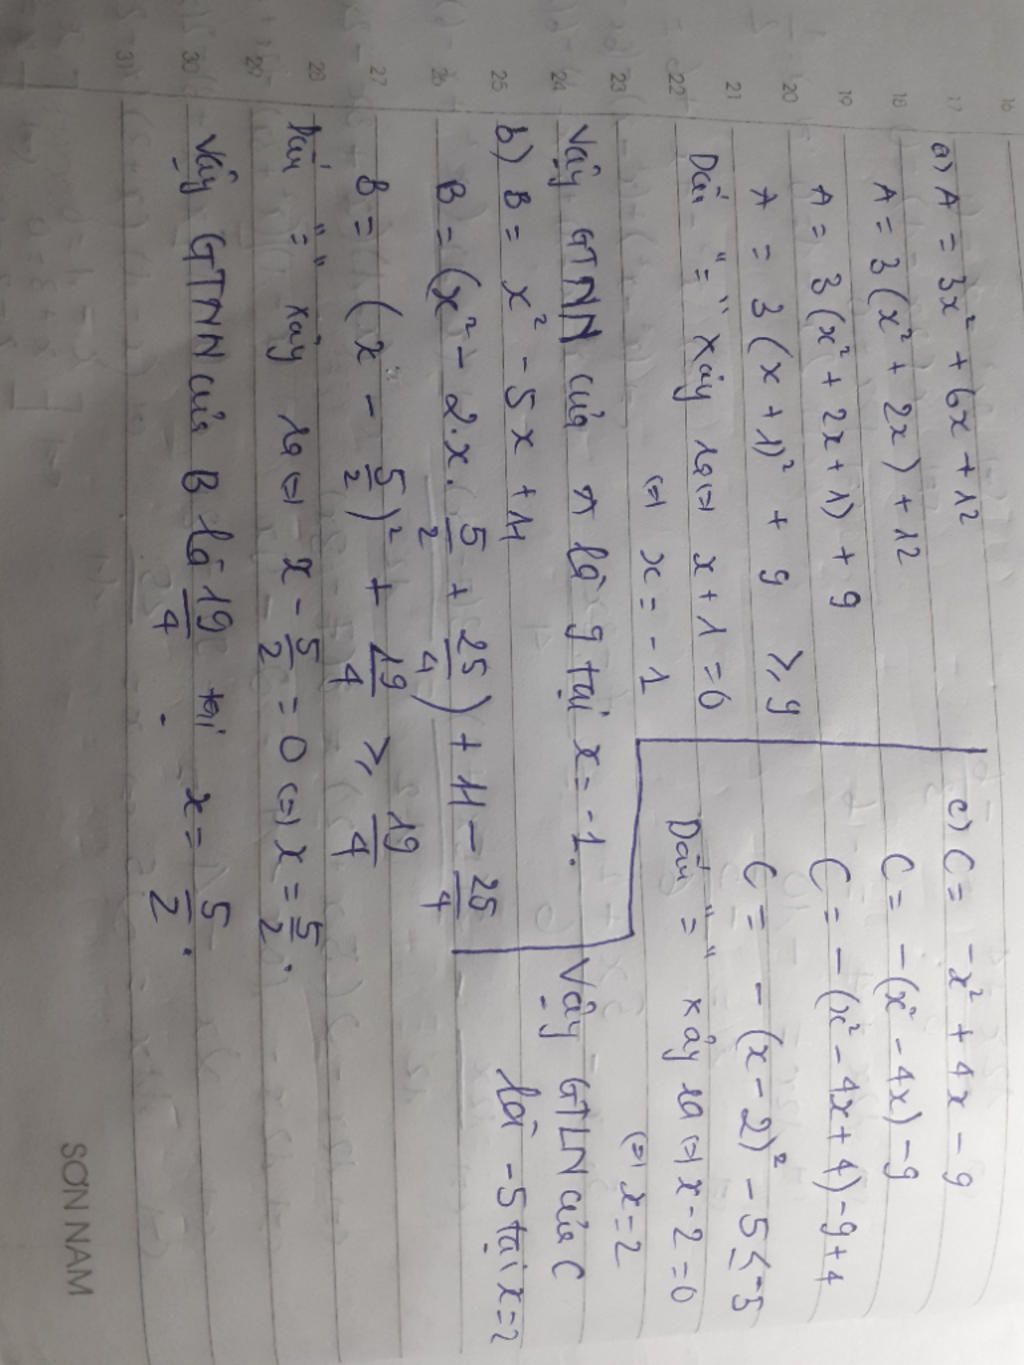 16
17
18
19
20
21
22
23
24
25
26
27
28
29
30
31
a) A = 3x² + 6x + 12
A = 3(x² + 2x) + 12
A = 3(x² + 2x + 1) + 9
A = 3(x + 1)² + 9 ⩾ 9
Dấu "=" xảy ra ⇔ x + 1 = 0
⇔ x = -1
Vậy GTNN của A là 9 tại x = -1.
b) B = x² - 5x + 11
B = (x² - 2.x. 5/2 + 25/4) + 11 - 25/4
B = (x - 5/2)² + 19/4 ⩾ 19/4
Dấu "=" xảy ra ⇔ x - 5/2 = 0 ⇔ x = 5/2.
Vậy GTNN của B là 19/4 tại x = 5/2.
c) C = -x² + 4x - 9
C = -(x² - 4x) - 9
C = -(x² - 4x + 4) - 9 + 4
C = -(x - 2)² - 5 ≤ -5
Dấu "=" xảy ra ⇔ x - 2 = 0
⇔ x = 2
Vậy GTLN của C
là -5 tại x = 2
SƠN NAM